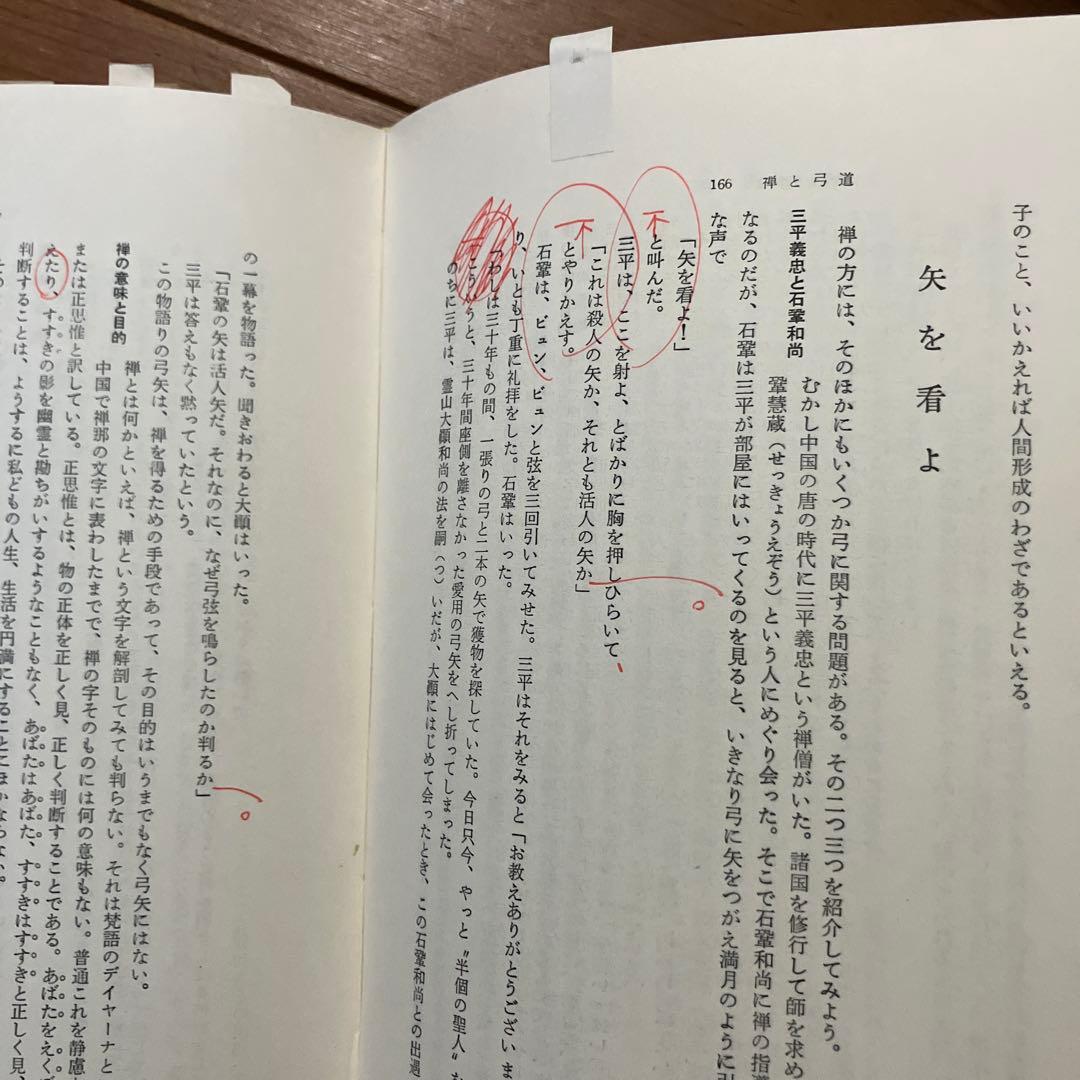 子のこと、いいかえれば人間形成のわざであるといえる。
矢を看よ
166 禅と弓道
禅の方には、そのほかにもいくつか弓に関する問題がある。その二つ三つを紹介してみよう。
三平義忠と石鞏和尚
むかし中国の唐の時代に三平義忠という禅僧がいた。諸国を修行して師を求め
鞏慧蔵（せっきょうえぞう）という人にめぐり会った。そこで石鞏和尚に禅の指
なるのだが、石鞏は三平が部屋にはいってくるのを見ると、いきなり弓に矢をつがえ満月のように引
な声で
「矢を看よ！」
不
と叫んだ。
三平は、ここを射よ、とばかりに胸を押しひらいて、
「これは殺人の矢か、それとも活人の矢か」
不
とやりかえす。
石鞏は、ビュン、ビュンと弦を三回引いてみせた。三平はそれをみると「お教えありがとうございま
り、いとも丁重に礼拝をした。石鞏はいった。
「わしは三十年もの間、一張りの弓と二本の矢で獲物を探していた。今日只今、やっと〝半個の聖人〟
こういうと、三十年間座側を離さなかった愛用の弓矢をへし折ってしまった。
のちに三平は、霊山大顚和尚の法を嗣（つ）いだが、大顚にはじめて会ったとき、この石鞏和尚との出遇
の一幕を物語った。聞きおわると大顚はいった。
「石鞏の矢は活人矢だ。それなのに、なぜ弓弦を鳴らしたのか判るか」
三平は答えもなく黙っていたという。
この物語りの弓矢は、禅を得るための手段であって、その目的はいうまでもなく弓矢にはない。
禅の意味と目的
禅とは何かといえば、禅という文字を解剖してみても判らない。それは梵語のデイヤーナと
中国で禅那の文字に表わしたまでで、禅の字そのものには何の意味もない。普通これを静慮
または正思惟と訳している。正思惟とは、物の正体を正しく見、正しく判断することである。あばたをえくぼ
えたり、すすきの影を幽霊と勘ちがいするようなこともなく、あばたはあばた、すすきはすすきと正しく見、
判断することは、ようするに私どもの人生、生活を円満にすることにほかならない。